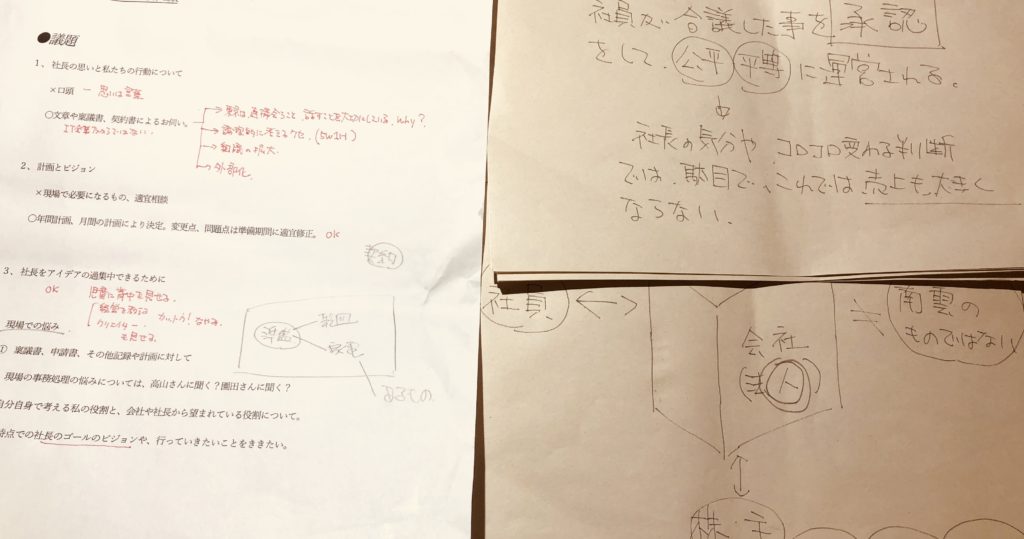 ●議題
1、社長の思いと私たちの行動について
×口頭 ー 思いは言葉
○文章や稟議書、契約書によるお伺い。
→ 論理的に考えるクセ。(5W1H)
→ 組織の拡大
→ 外部化
2、計画とビジョン
×現場で必要になるもの、適宜相談
○年間計画、月間の計画により決定。変更点、問題点は準備期間に適宜修正。 OK
3、社長をアイデアの過集中できるために
OK 思電に背中を見せる。
も見せる。
現場での悩み
① 稟議書、申請書、その他記録や計画に対して
現場の事務処理の悩みについては、高山さんに聞く?園田さんに聞く?
自分自身で考える私の役割と、会社や社長から望まれている役割について。
時点での社長のゴールのビジョンや、行っていきたいことをききたい。
社員が合議した事を承認
をして、公平 平等 に運営される。
社長の気分や、コロコロ変わる判断
では、駄目で、これでは売上も、大きく
ならない。
社員
会社
法人
南雲の
ものではない
株主